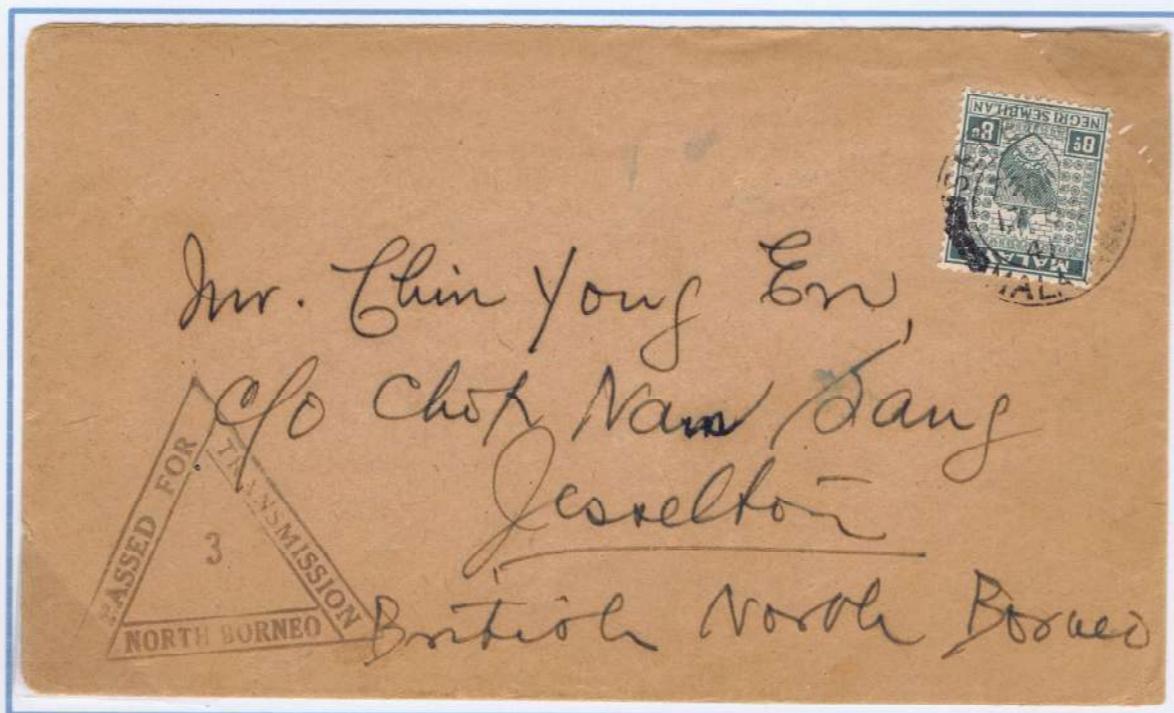 NEGRI SEMBILAN
8c 8c
MALAYA
Mr. Chin Yong En,
c/o Chop Nam Sang
Jesselton
British North Borneo
PASSED FOR TRANSMISSION
3
NORTH BORNEO